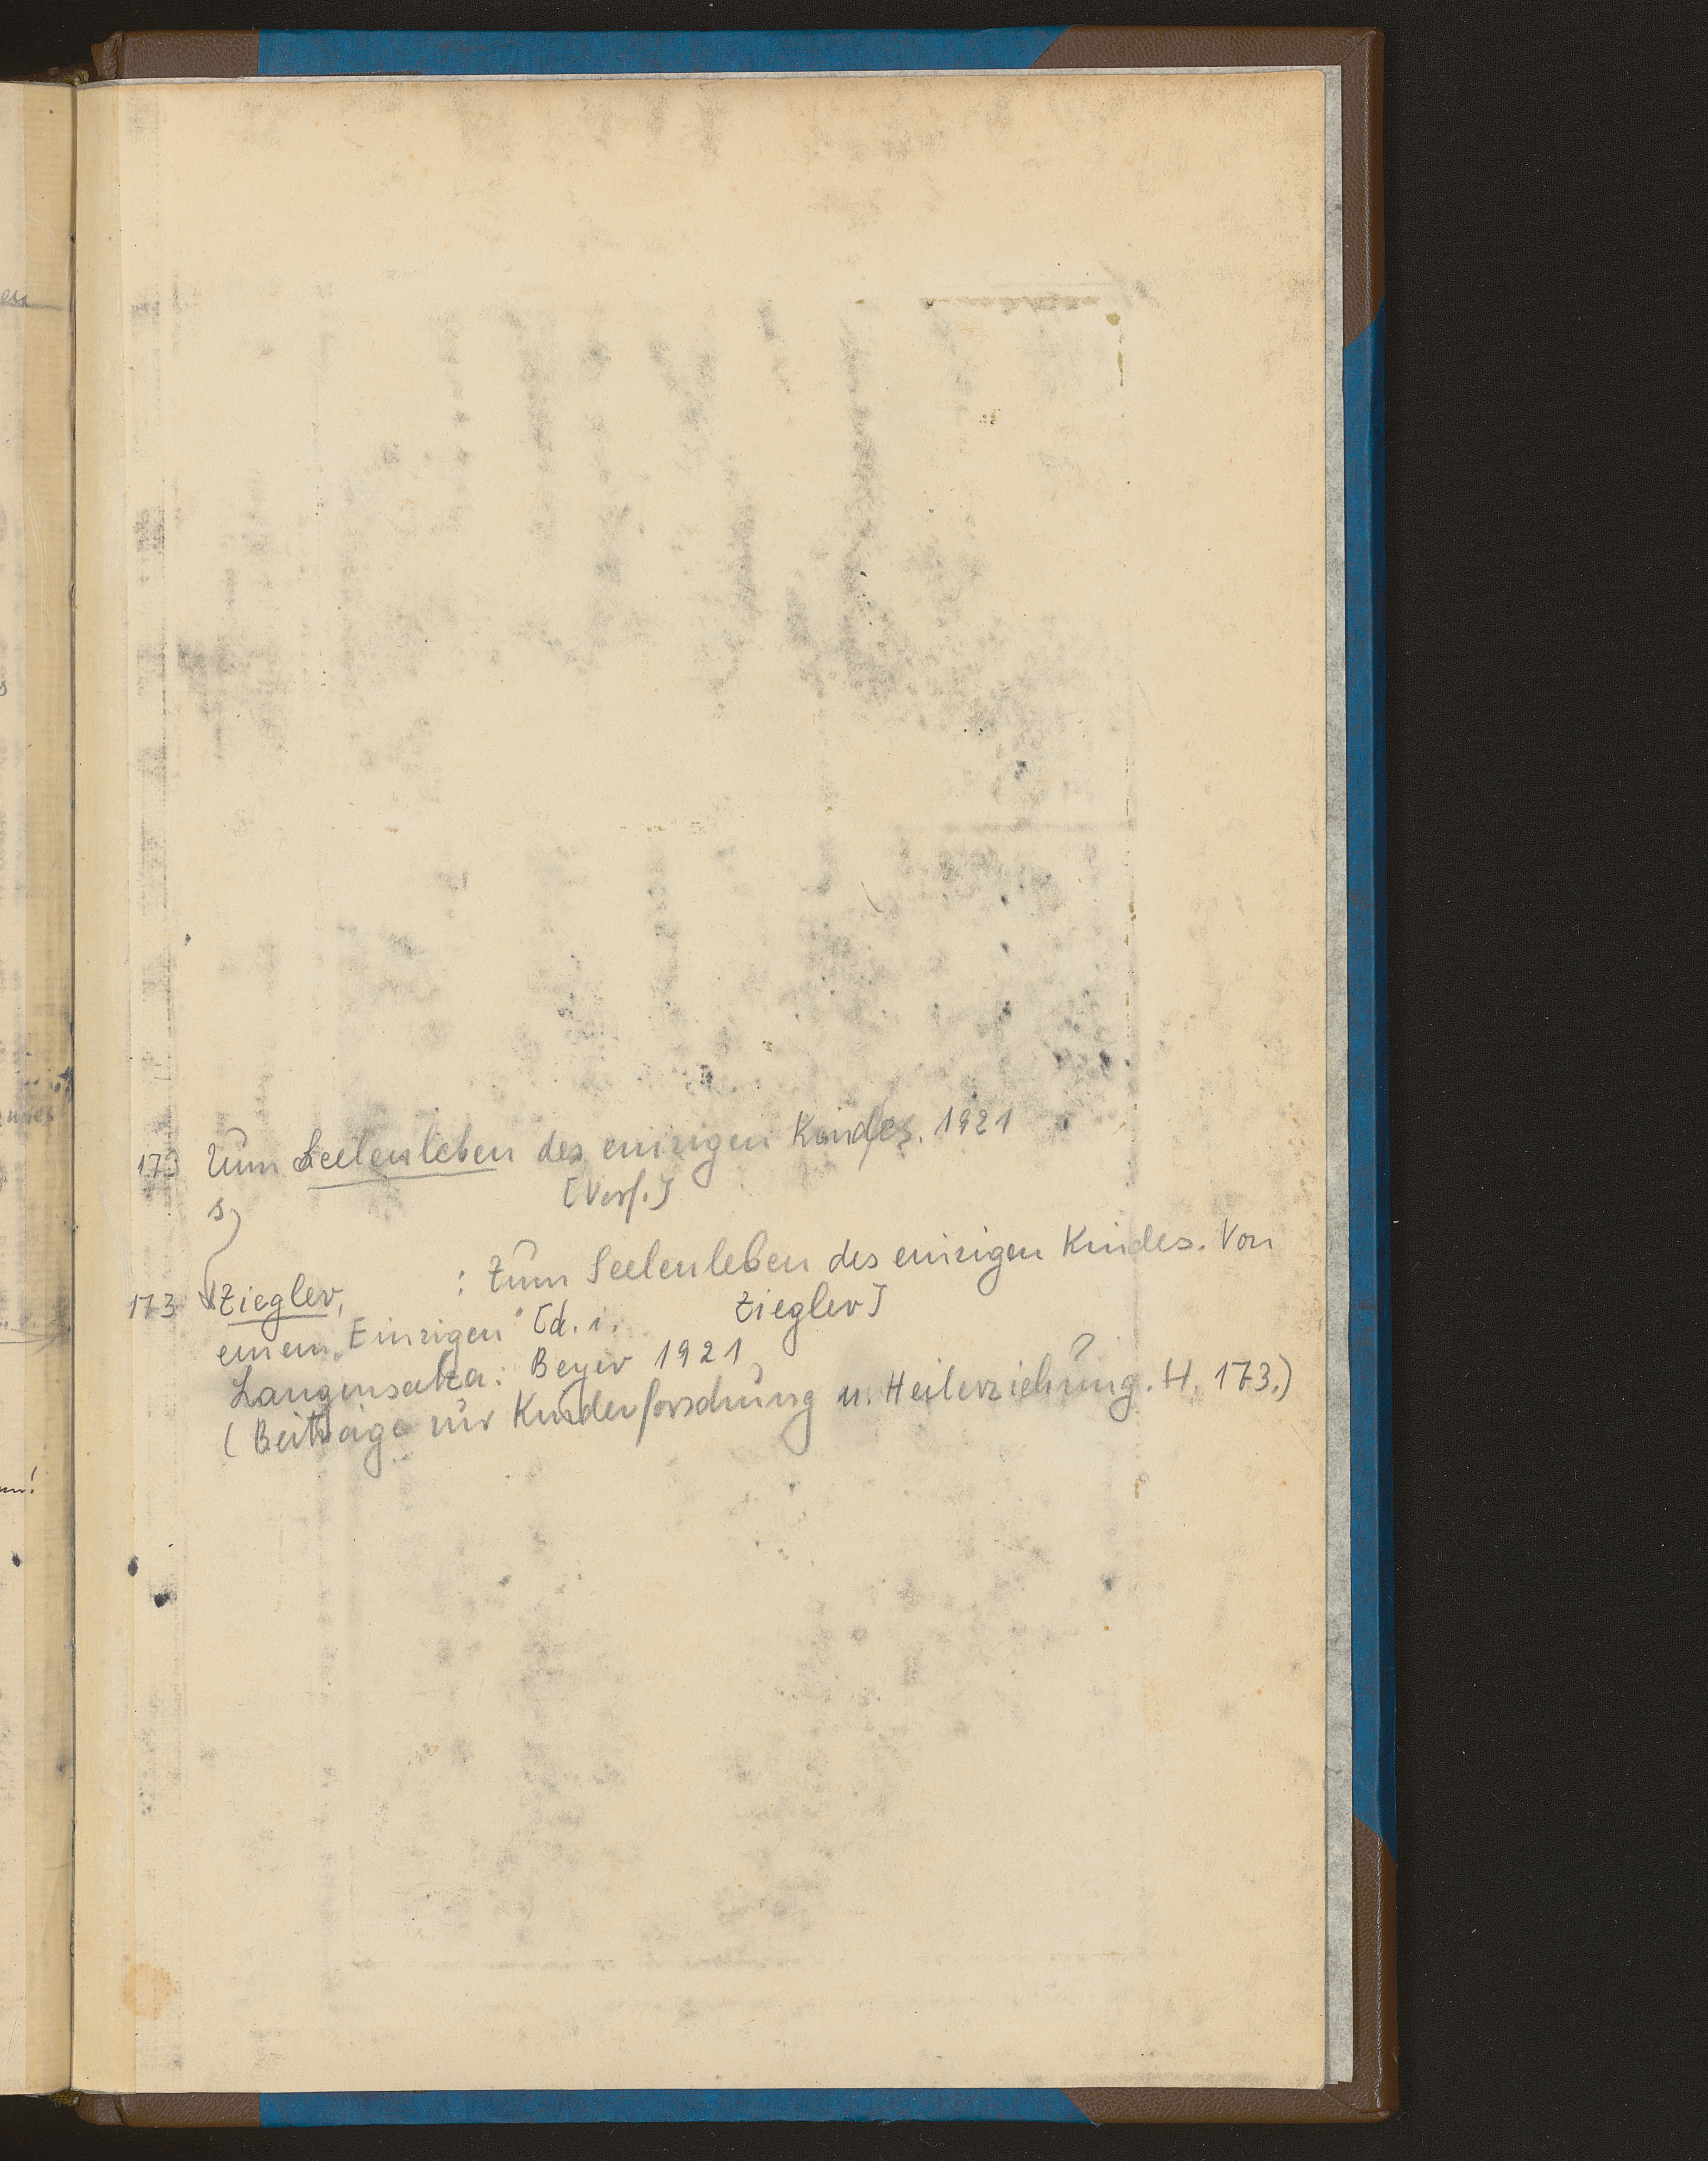 173 Zum Seelenleben des einzigen Kindes. 1921
s. [Verf.]
173 Ziegler, : Zum Seelenleben des einzigen Kindes. Von
einem „Einzigen“ [d. i. Ziegler]
Langensalza: Beyer 1921
(Beiträge zur Kinderforschung u. Heilerziehung. H. 173.)